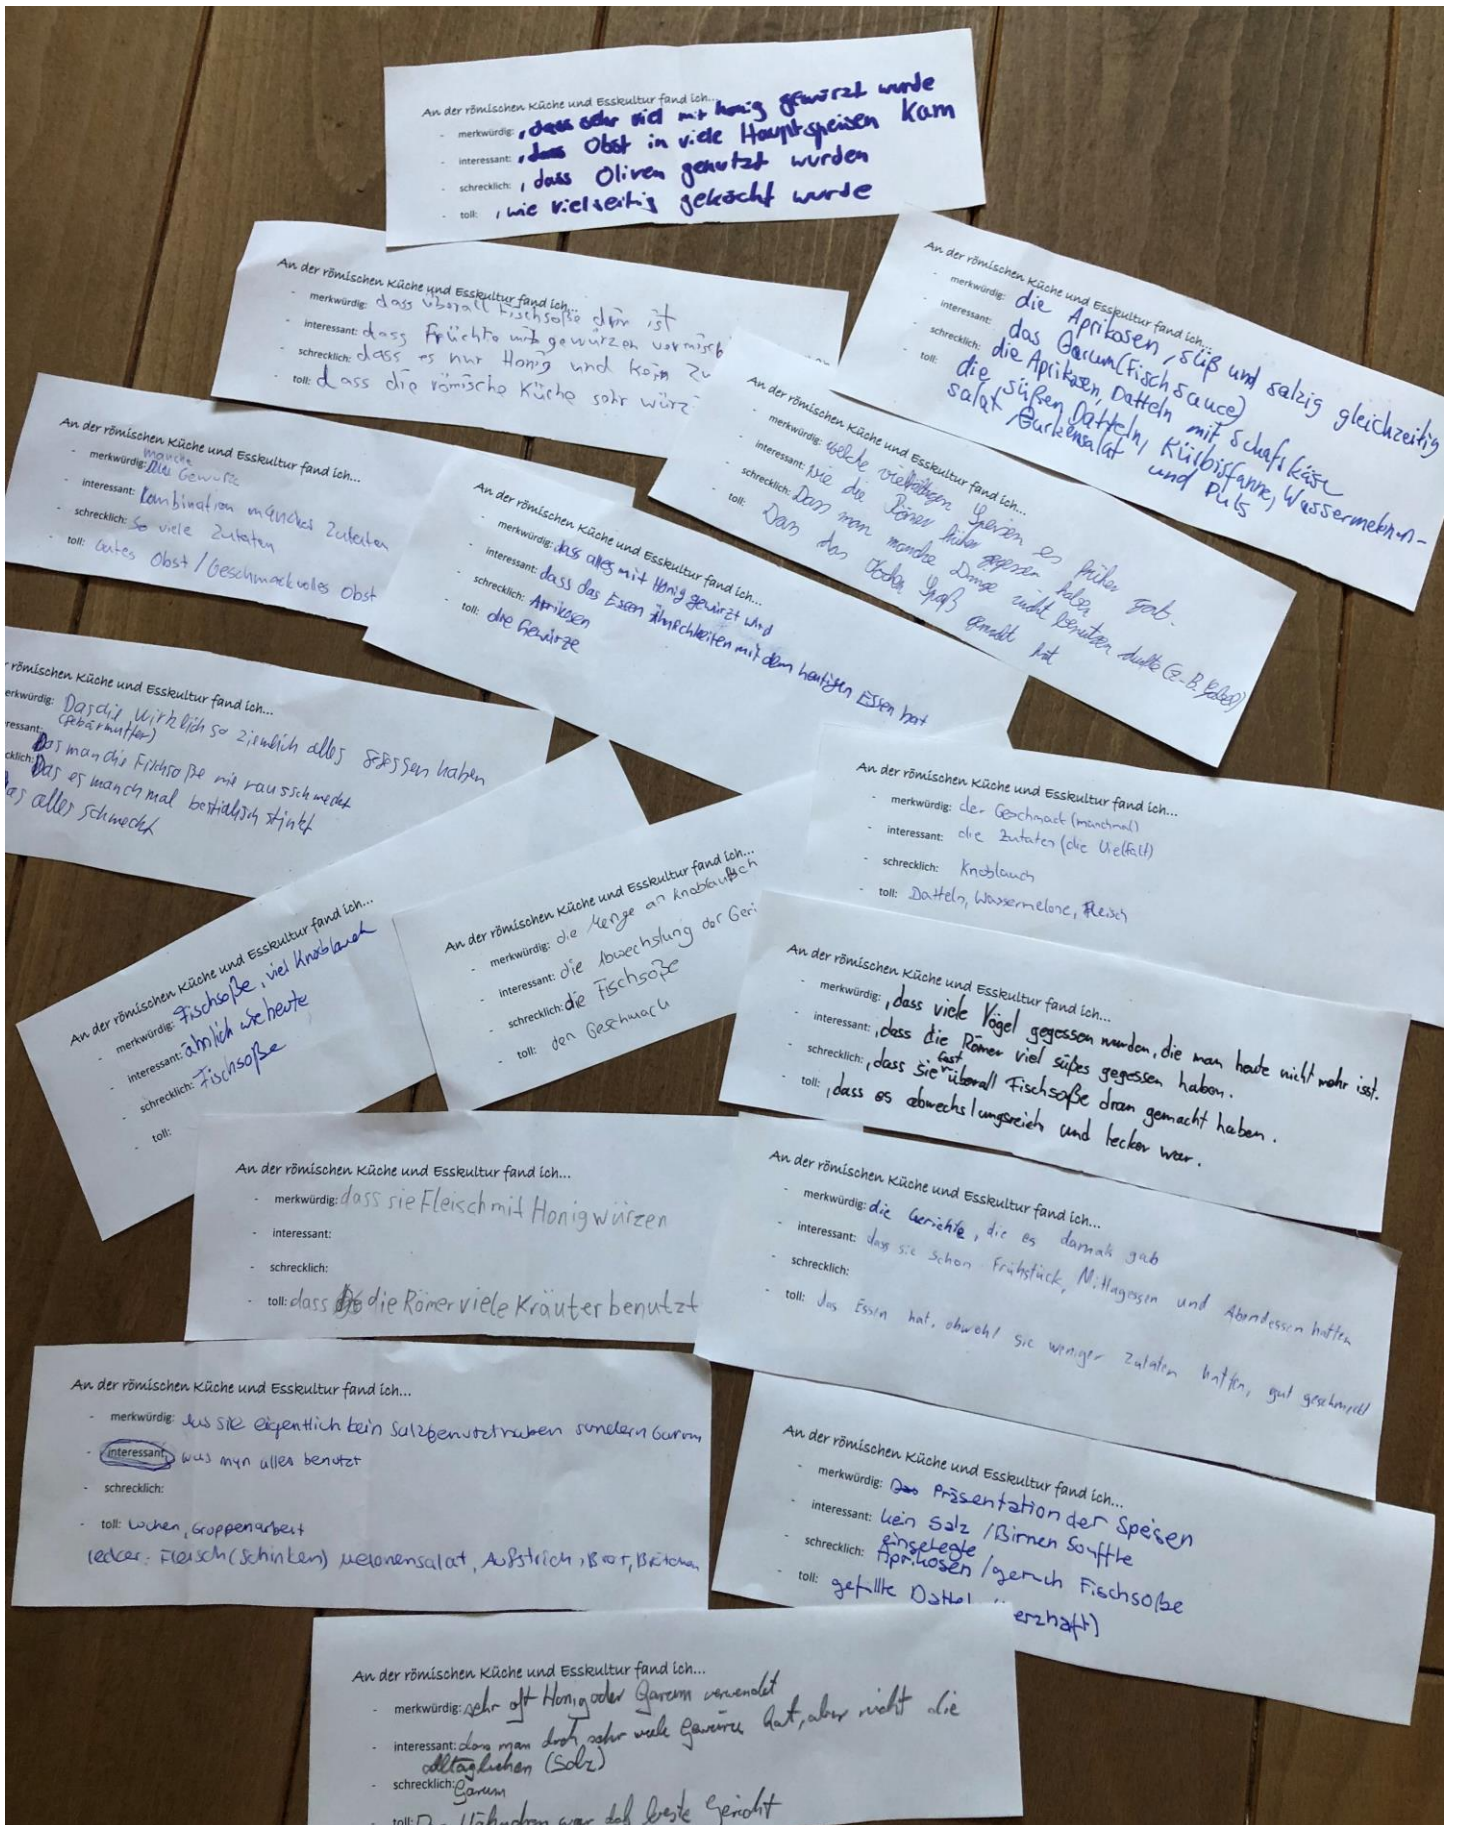 An der römischen Küche und Esskultur fand ich...
- merkwürdig: , dass sehr viel mit honig gewürzt wurde
- interessant: , dass Obst in viele Hauptspeisen kam
- schrecklich: , dass Oliven genutzt wurden
- toll: , wie vielseitig gekocht wurde
An der römischen Küche und Esskultur fand ich...
- merkwürdig: dass überall Fischsoße drin ist
- interessant: dass Früchte mit gewürzen vermisch
- schrecklich: dass es nur Honig und kein Zu
- toll: dass die römische Küche sehr würz
An der römischen Küche und Esskultur fand ich...
- merkwürdig: die Aprikosen, süß und salzig gleichzeitig
- interessant: das Garum (Fischsauce)
- schrecklich: die Aprikosen, Datteln mit Schafskäse
- toll: die süßen Datteln, Kürbispfanne, Wassermelonen-
salat Gurkensalat und Puls
An der römischen Küche und Esskultur fand ich...
- merkwürdig: manche Gewürze
- interessant: Kombination manches Zutaten
- schrecklich: So viele Zutaten
- toll: Gutes Obst / Geschmackvolles Obst
An der römischen Küche und Esskultur fand ich...
- merkwürdig: welche vielfältigen Speisen es früher gab.
- interessant: wie die Römer früher gegessen haben
- schrecklich: Dass man manche Dinge nicht benutzen durfte (z.B. Gabel)
- toll: Dass das Kochen Spaß gemacht hat
An der römischen Küche und Esskultur fand ich...
- merkwürdig: dass alles mit Honig gewürzt wird
- interessant: dass das Essen Ähnlichkeiten mit dem heutigen Essen hat
- schrecklich: Aprikosen
- toll: die Gewürze
r römischen Küche und Esskultur fand ich...
erkwürdig: Das die wirklich so ziemlich alles gegessen haben
(Gebärmutter)
ressant: Das man die Fischsoße nie rausschmeckt
cklich: Das es manchmal bestialisch stinkt
das alles schmeckt
An der römischen Küche und Esskultur fand ich...
- merkwürdig: der Geschmack (manchmal)
- interessant: die Zutaten (die Vielfalt)
- schrecklich: Knoblauch
- toll: Datteln, Wassermelone, Fleisch
An der römischen Küche und Esskultur fand ich...
- merkwürdig: Fischsoße, viel Knoblauch
- interessant: ähnlich wie heute
- schrecklich: Fischsoße
- toll:
An der römischen Küche und Esskultur fand ich...
- merkwürdig: die Menge an Knoblauch
- interessant: die Abwechslung der Geri
- schrecklich: die Fischsoße
- toll: den Geschmack
An der römischen Küche und Esskultur fand ich...
- merkwürdig: , dass viele Vögel gegessen wurden, die man heute nicht mehr isst.
- interessant: , dass die Römer viel süßes gegessen haben.
- schrecklich: , dass sie fast überall Fischsoße dran gemacht haben.
- toll: , dass es abwechslungsreich und lecker war.
An der römischen Küche und Esskultur fand ich...
- merkwürdig: dass sie Fleisch mit Honig würzen
- interessant:
- schrecklich:
- toll: dass die Römer viele Kräuter benutzt
An der römischen Küche und Esskultur fand ich...
- merkwürdig: die Gerichte, die es damals gab
- interessant: dass sie schon Frühstück, Mittagessen und Abendessen hatten
- schrecklich:
- toll: das Essen hat, obwohl sie weniger Zutaten hatten, gut geschmeckt
An der römischen Küche und Esskultur fand ich...
- merkwürdig: das sie eigentlich kein Salz benutzt haben sondern Garum
- interessant: was man alles benutzt
- schrecklich:
- toll: Kochen, Gruppenarbeit
lecker: Fleisch (Schinken) Melonensalat, Aufstrich, Brot, Brötchen
An der römischen Küche und Esskultur fand ich...
- merkwürdig: Präsentation der Speisen
- interessant: kein Salz / Birnen Souffle
- schrecklich: eingelegte Aprikosen / geruch Fischsoße
- toll: gefüllte Dattel erzhaft)
An der römischen Küche und Esskultur fand ich...
- merkwürdig: sehr oft Honig oder Garum verwendet
- interessant: dass man doch sehr viele Gewürze hat, aber nicht die
alltäglichen (Salz)
- schrecklich: Garum
toll: Hähnchen war das beste Gericht